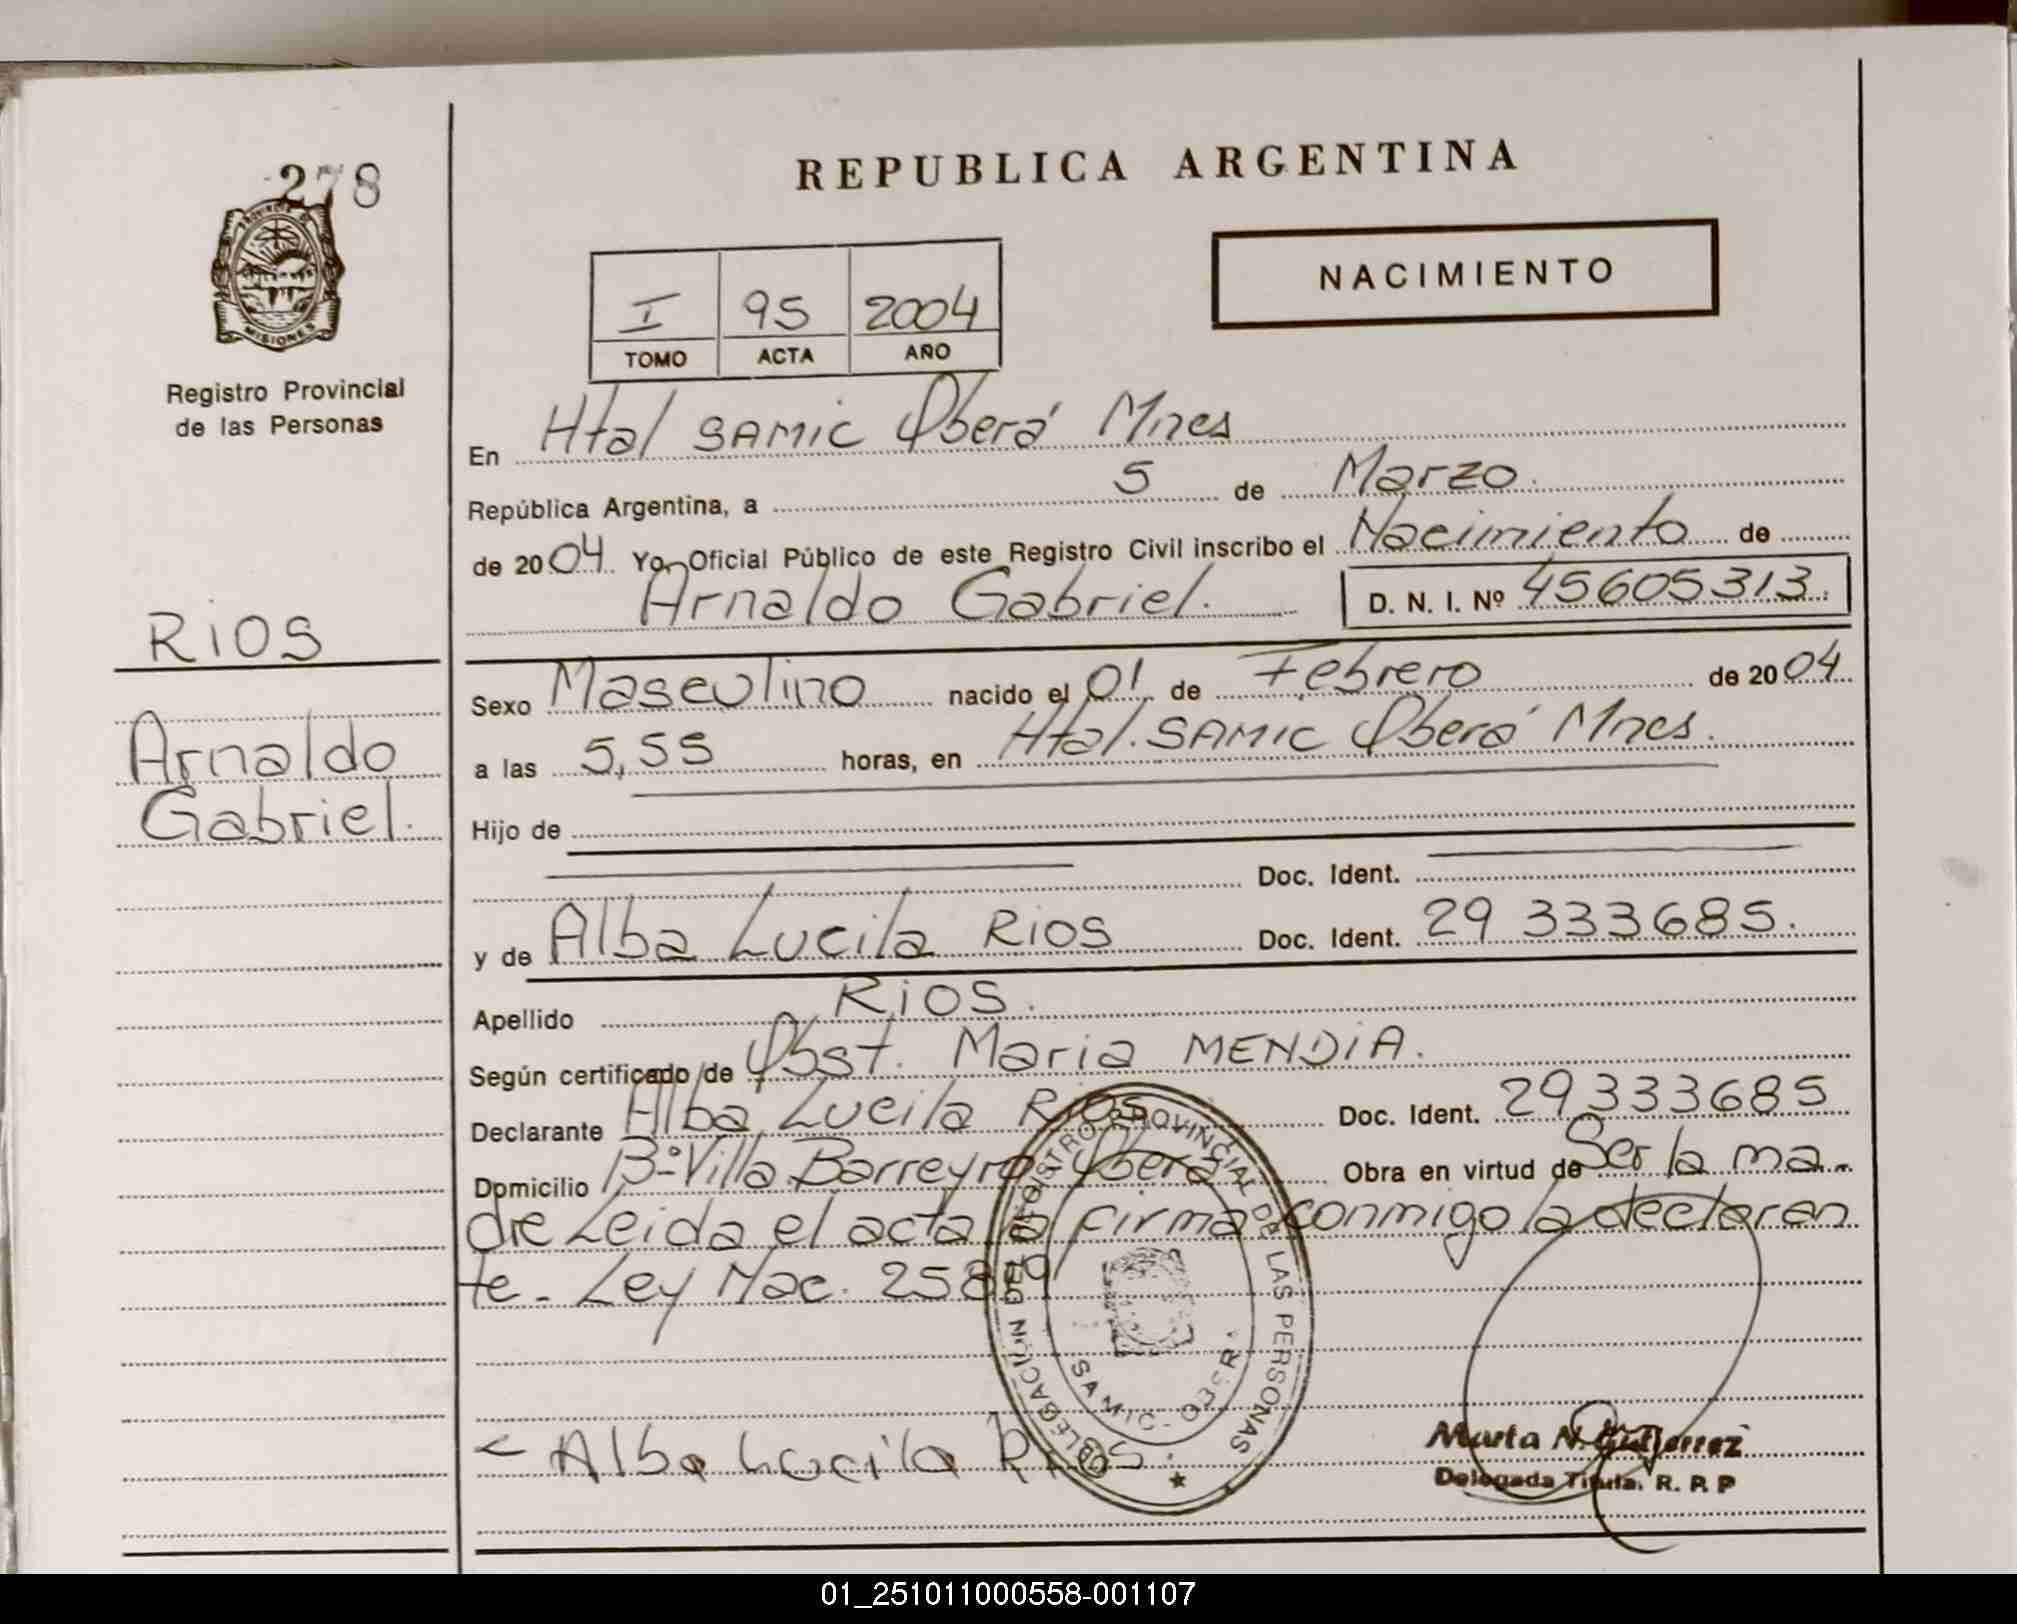 278
PROVINCIA DE
MISIONES
Registro Provincial
de las Personas
RIOS
Arnaldo
Gabriel.
REPUBLICA ARGENTINA
NACIMIENTO
I 95 2004
TOMO ACTA AÑO
En Htal SAMIC Oberá Mnes
República Argentina, a 5 de Marzo.
de 2004. Yo, Oficial Público de este Registro Civil inscribo el Nacimiento de
Arnaldo Gabriel. D. N. I. Nº 45605313.
Sexo Masculino nacido el 01 de Febrero de 2004
a las 5,55 horas, en Htal. SAMIC Oberá Mnes.
Hijo de
Doc. Ident.
y de Alba Lucila RIOS Doc. Ident. 29 333685.
Apellido RIOS.
Según certificado de Obst. Maria MENDIA.
Declarante Alba Lucila RIOS Doc. Ident. 29333685
Domicilio Bº Villa Barreyro Oberá Obra en virtud de Ser la ma-
dre Leida el acta la firma conmigo la declaran
te- Ley Nac. 25819
DELEGACION DEL REGISTRO PROVINCIAL DE LAS PERSONAS
SAMIC-OBERA
Alba Lucila RIOS.
Marta N. Gutierrez
Delegada Titular R. P. P
01_251011000558-001107